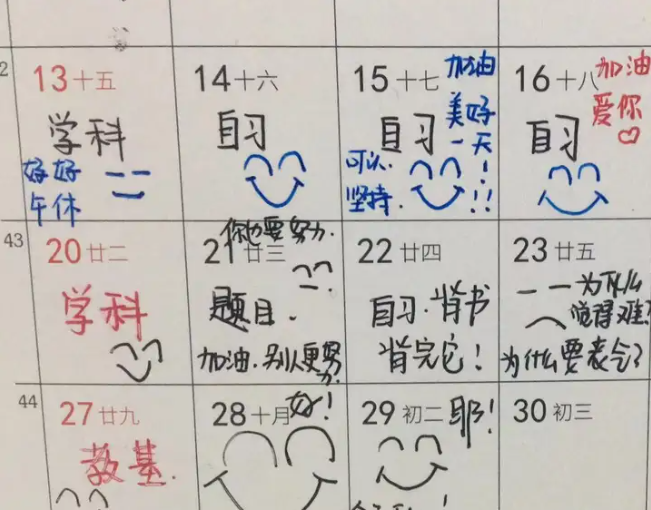 2
13 十五
学科
好好
午休
14 十六
自习
15 十七
加油
美好
一天!
自习
可以
坚持.
!!
16 十八
加油
爱你
自习
43
20 廿二
学科
你也要努力.
21 廿三
题目.
加油.别人更努
力.
22 廿四
自习.背书
背完它!
23 廿五
为什么
觉得难?
为什么要表
44
27 廿九
教基.
28 十月
好!
29 初二
耶!
30 初三